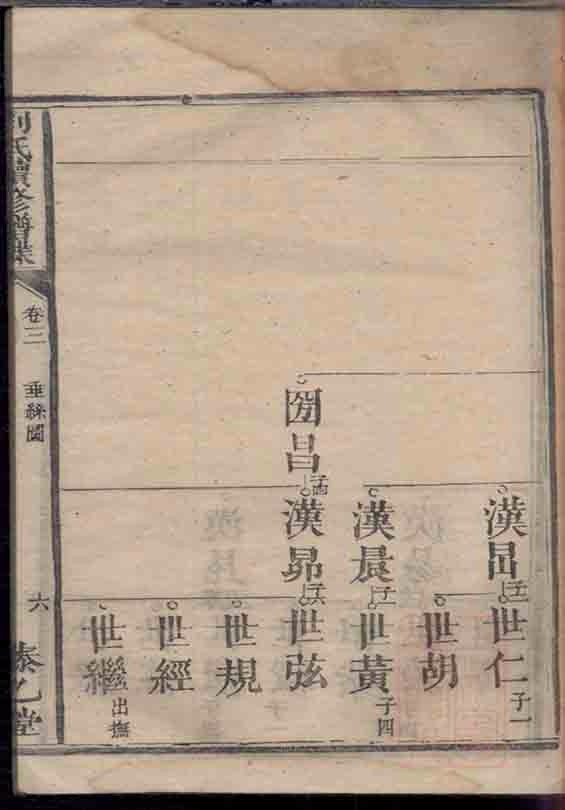 漢
世仁
子一
世胡
漢晨
世黃
子四
昌
漢昴
世弦
世規
世經
世繼
出撫
氏續修譜
卷三
垂絲圖
六
泰乙堂